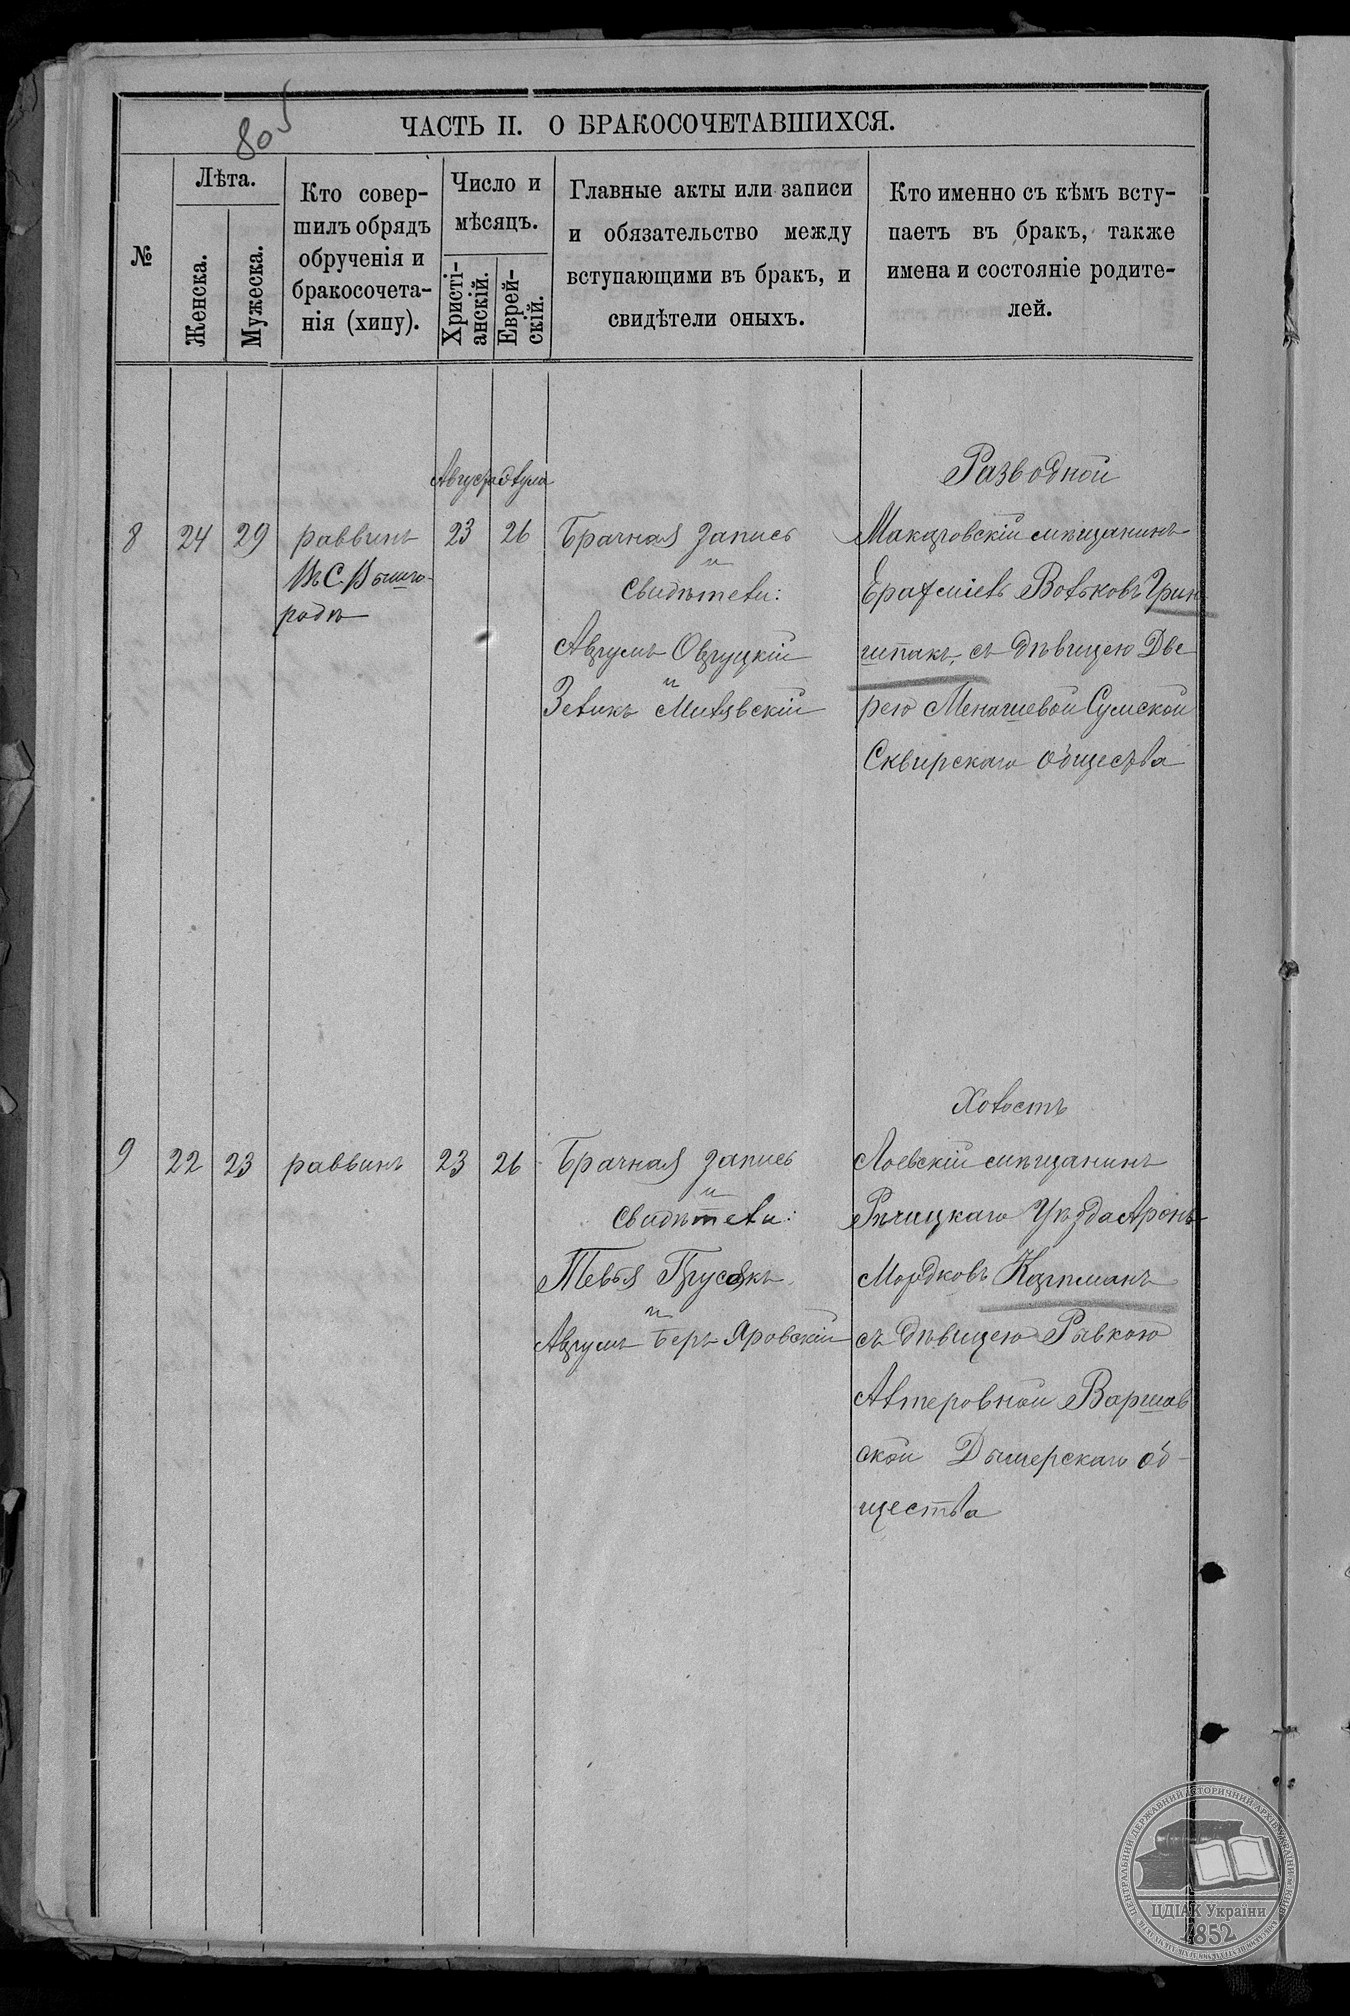 805
ЧАСТЬ II. О БРАКОСОЧЕТАВШИХСЯ.
№
Лѣта.
Женска.
Мужеска.
Кто совер-
шилъ обрядъ
обрученія и
бракосочета-
нія (хипу).
Число и
мѣсяцъ.
Христі-
анскій.
Еврей-
скій.
Главные акты или записи
и обязательство между
вступающими въ бракъ, и
свидѣтели оныхъ.
Кто именно съ кѣмъ всту-
паетъ въ бракъ, также
имена и состояніе родите-
лей.
8
24
29
раввинъ
Въ С. Вышго-
родѣ
Августа
23
26
Брачная запись
и
свидѣтели:
Аврумъ Овруцкій
и
Зеликъ Милявскій
Разводной
Макаровскій мѣщанинъ
Вольковъ Грин
шпакъ, съ дѣвицею Две
рею Менашевой Сумской
Сквирскаго общества
9
22
23
раввинъ
23
26
Брачная запись
и
свидѣтели:
Тевья Прусакъ
и
Аврумъ Беръ Яровскій
Холостъ
Лоевскій мѣщанинъ
Рѣчицкаго Уѣзда Аронъ
Мордковъ
съ дѣвицею Рывкою
Алтеровной Варшав
ской Дымерскаго об-
щества
ЦЕНТРАЛЬНИЙ ДЕРЖАВНИЙ ІСТОРИЧНИЙ АРХІВ УКРАЇНИ
ЦДІАК України
1852